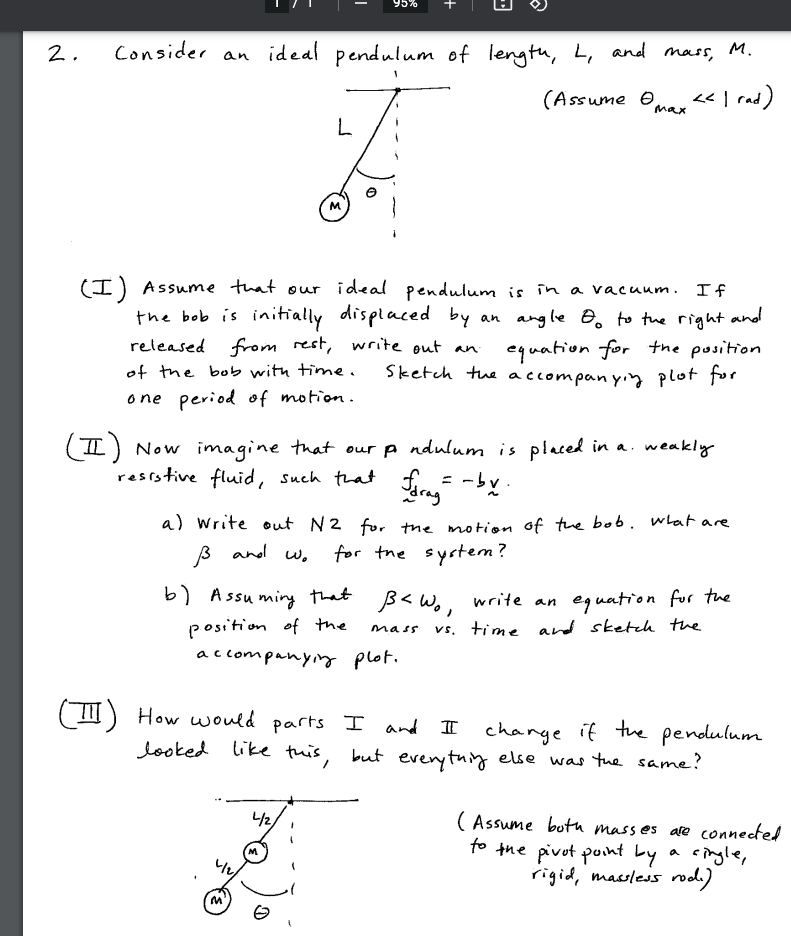 1 / 1 | — 95% +
2. Consider an ideal pendulum of length, L, and mass, M.
(Assume θmax << 1 rad)
L
θ
M
(I) Assume that our ideal pendulum is in a vacuum. If
the bob is initially displaced by an angle θ₀ to the right and
released from rest, write out an equation for the position
of the bob with time. Sketch the accompanying plot for
one period of motion.
(II) Now imagine that our p ndulum is placed in a weakly
resistive fluid, such that f_drag = -bv.
a) Write out N2 for the motion of the bob. What are
β and ω₀ for the system?
b) Assuming that β<ω₀, write an equation for the
position of the mass vs. time and sketch the
accompanying plot.
(III) How would parts I and II change if the pendulum
looked like this, but everything else was the same?
L/2
M
L/2
M
θ
(Assume both masses are connected
to the pivot point by a single,
rigid, massless rod.)